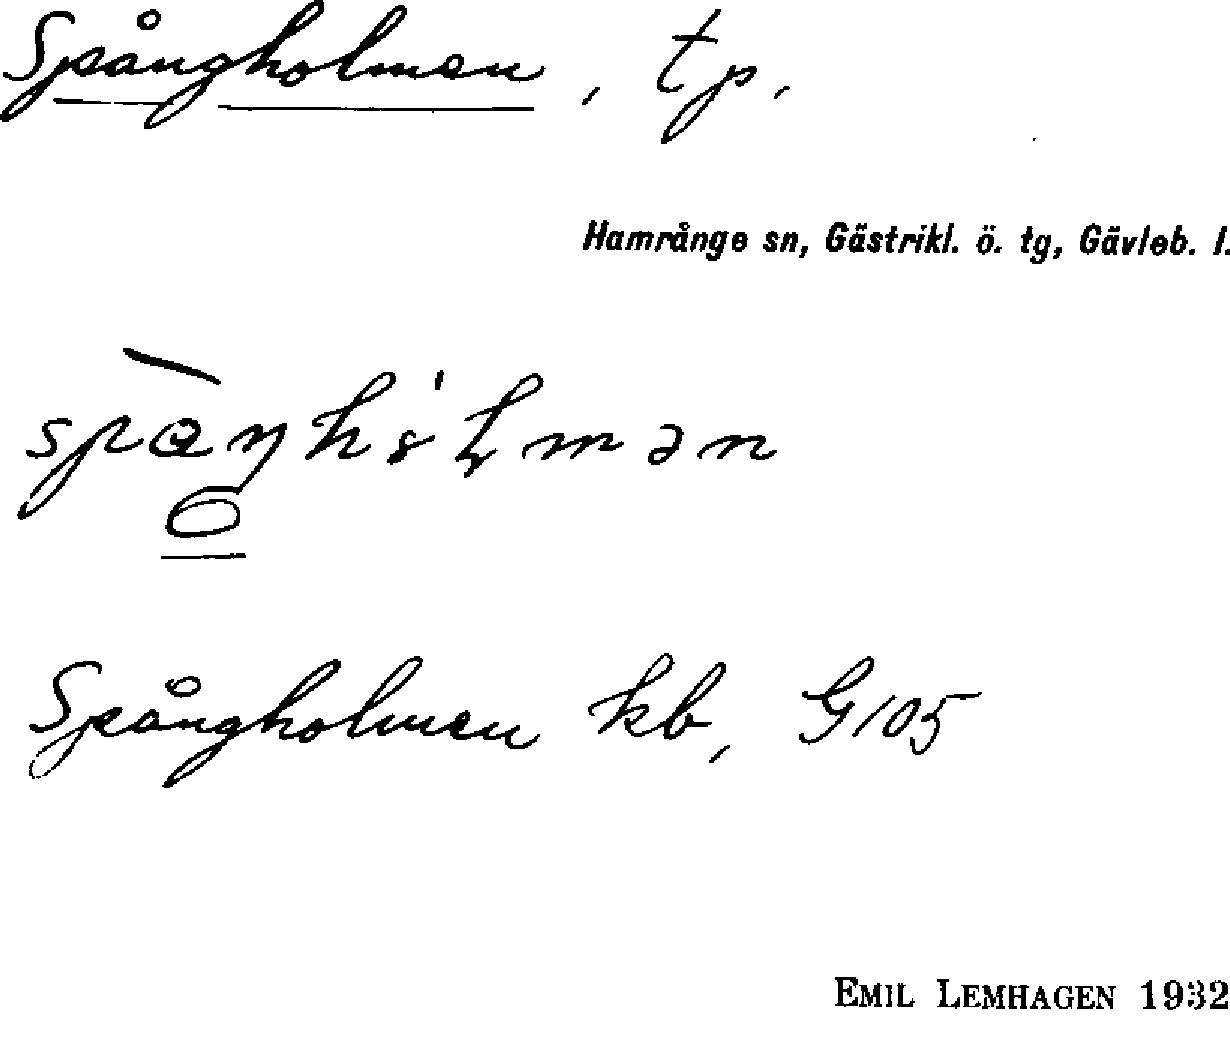 Spångholmen, tp.
Hamrånge sn, Gästrikl. ö. tg, Gävleb. l.
Spångholmen kb, G105
EMIL LEMHAGEN 1932